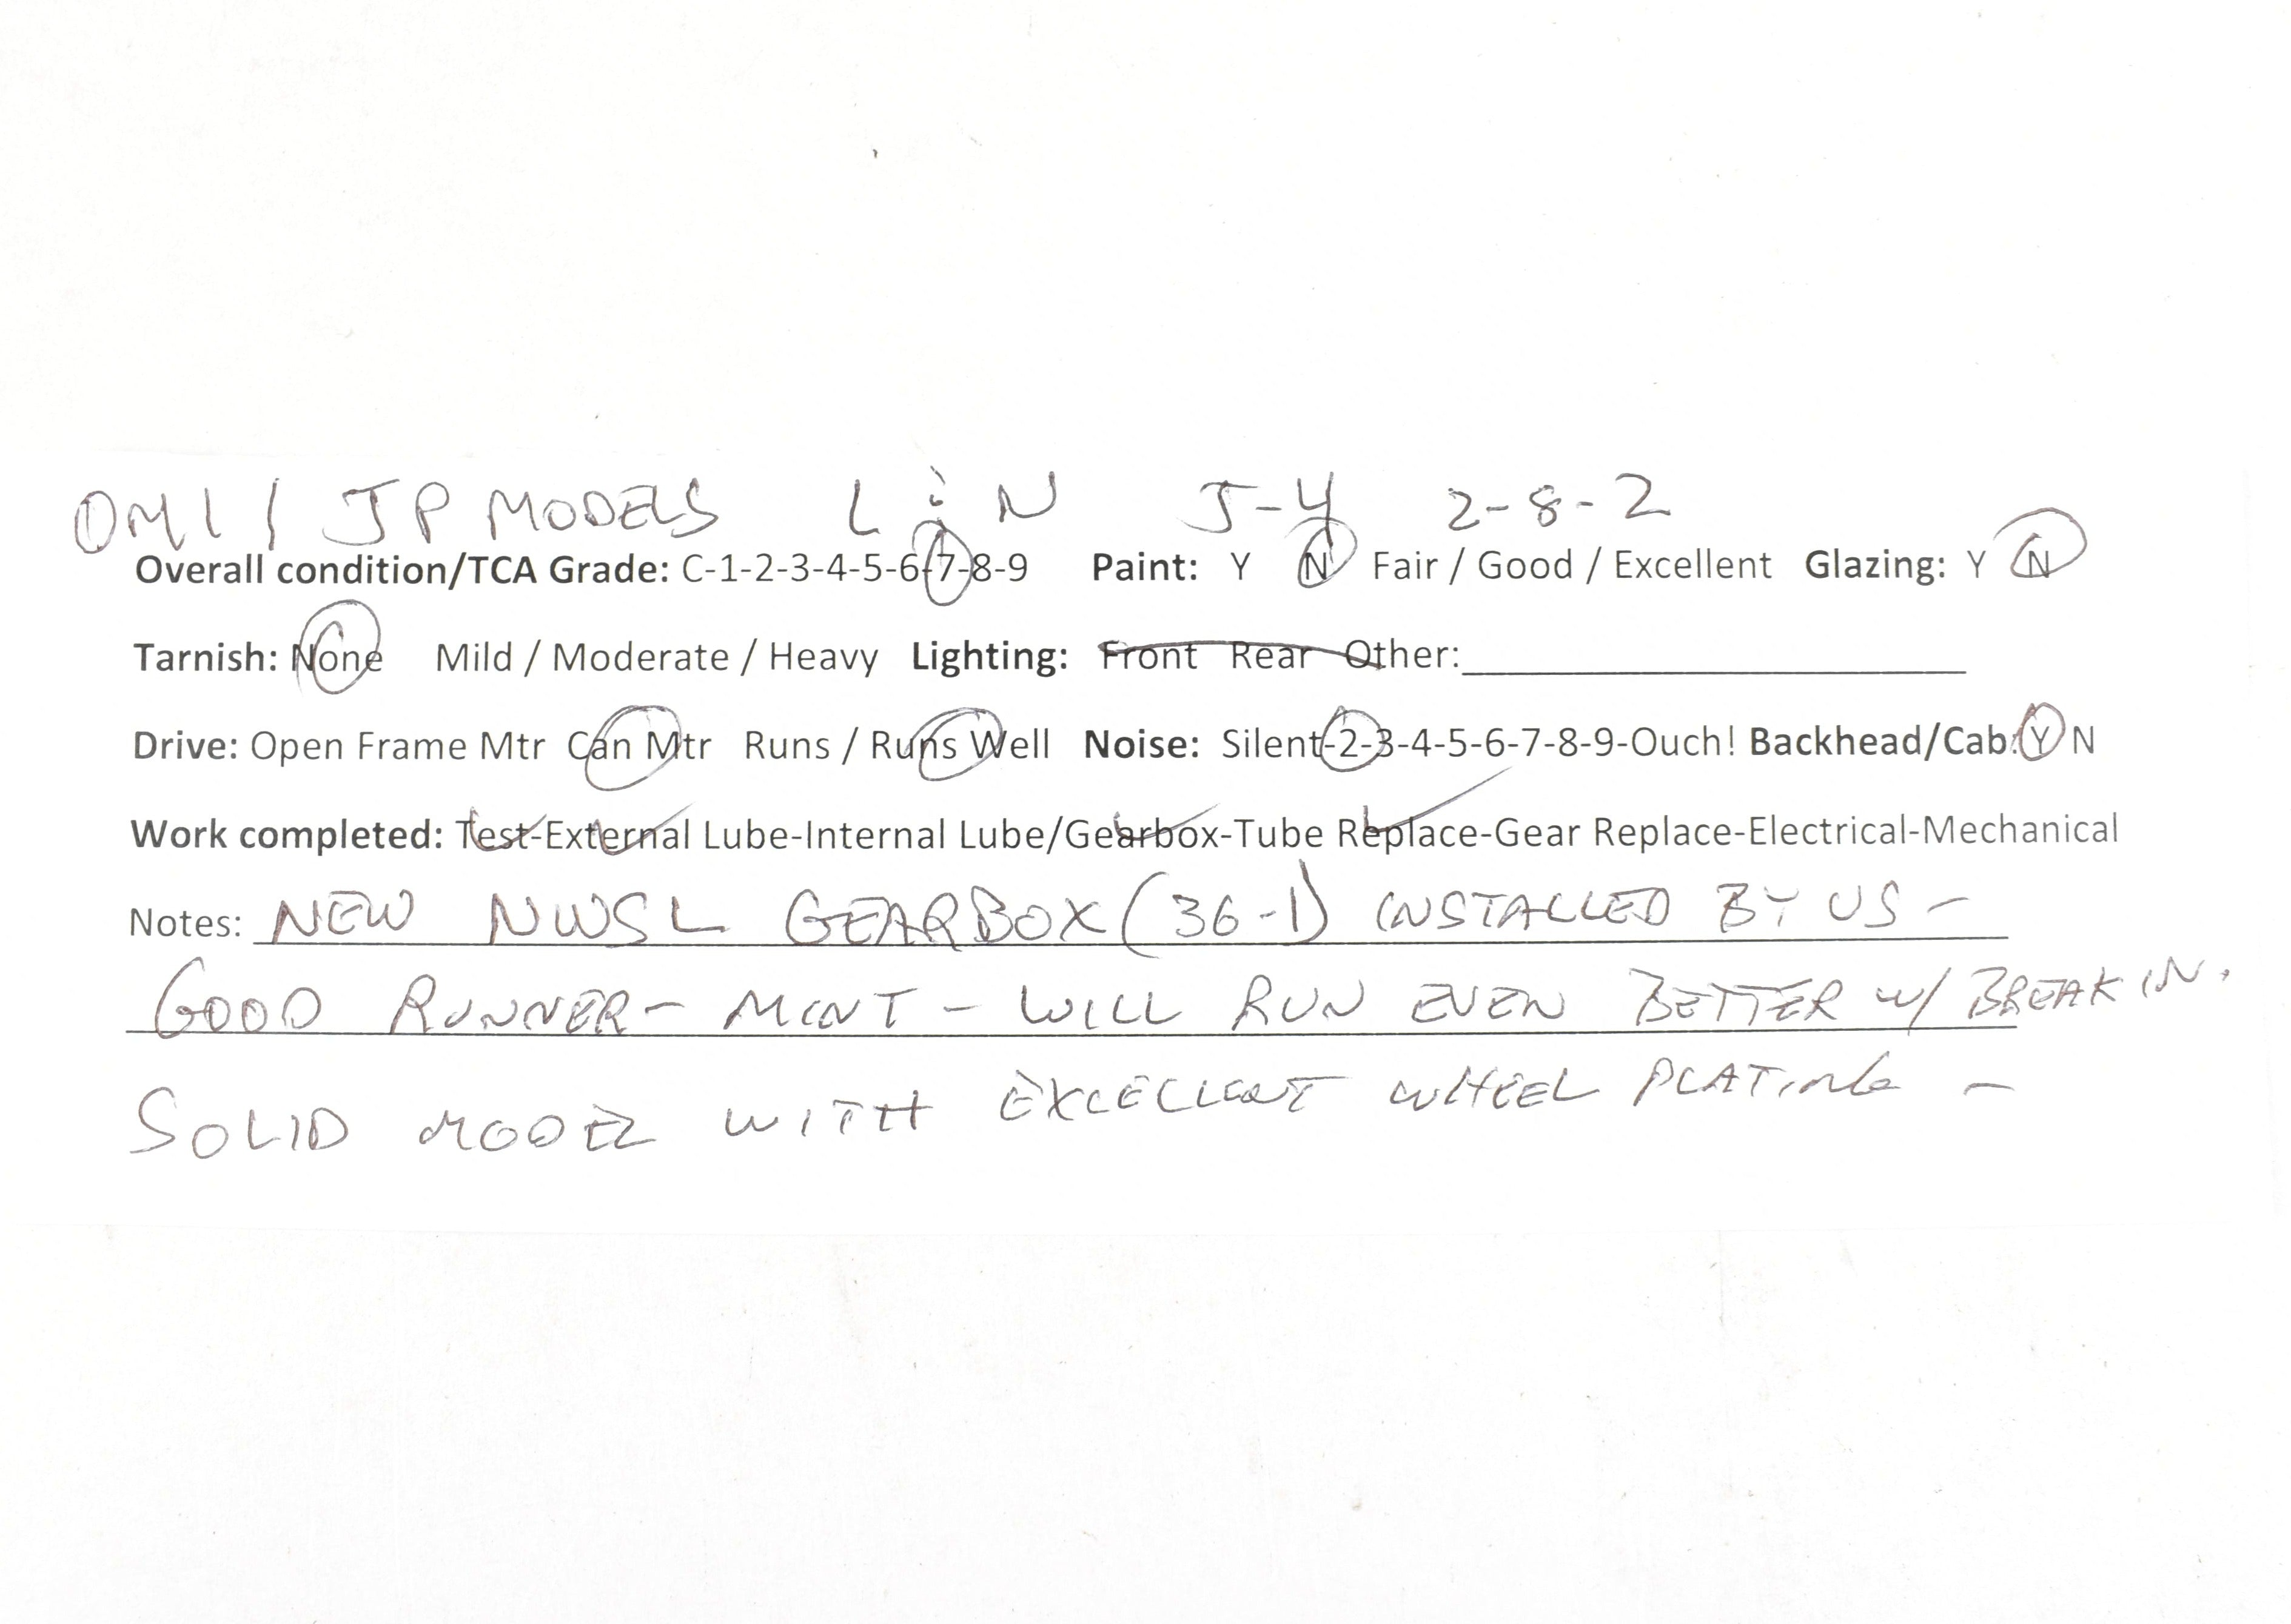 OMI / JP MODELS L & N J-4 2-8-2
Overall condition/TCA Grade: C-1-2-3-4-5-6-7-8-9 Paint: Y N Fair / Good / Excellent Glazing: Y N
Tarnish: None Mild / Moderate / Heavy Lighting: Front Rear Other:
Drive: Open Frame Mtr Can Mtr Runs / Runs Well Noise: Silent-2-3-4-5-6-7-8-9-Ouch! Backhead/Cab: Y N
Work completed: Test-External Lube-Internal Lube/Gearbox-Tube Replace-Gear Replace-Electrical-Mechanical
Notes: NEW NWSL GEARBOX (36-1) INSTALLED BY US -
GOOD RUNNER - MINT - WILL RUN EVEN BETTER w/ BREAK IN.
SOLID MODEL WITH EXCELLENT WHEEL PLATING -